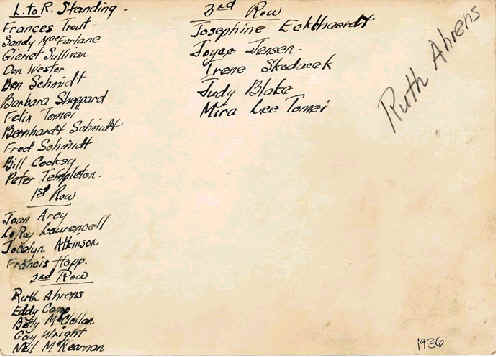 L. to R. Standing.
Frances Trout
Sandy MacFarlane
Sullivan
Don Wester
Don Schmidt
Barbara Sheppard
Felix Tomei
Bernhardt Schmidt
Fred Schmidt
Bill Cooksy
Peter Templeton.
1st Row
Joan Arey
LeRoy
Jocelyn Atkinson
Francis Hopp.
3rd Row
Ruth Ahrens
Eddy Camp
Betty McClellan
Gay Wright
Neil McKearnan
3rd Row
Josephine Eckhhaerdt.
Joyce Jensen.
Irene Skadeek
Judy Blake
Mira Lee Tomei
Ruth Ahrens
1936